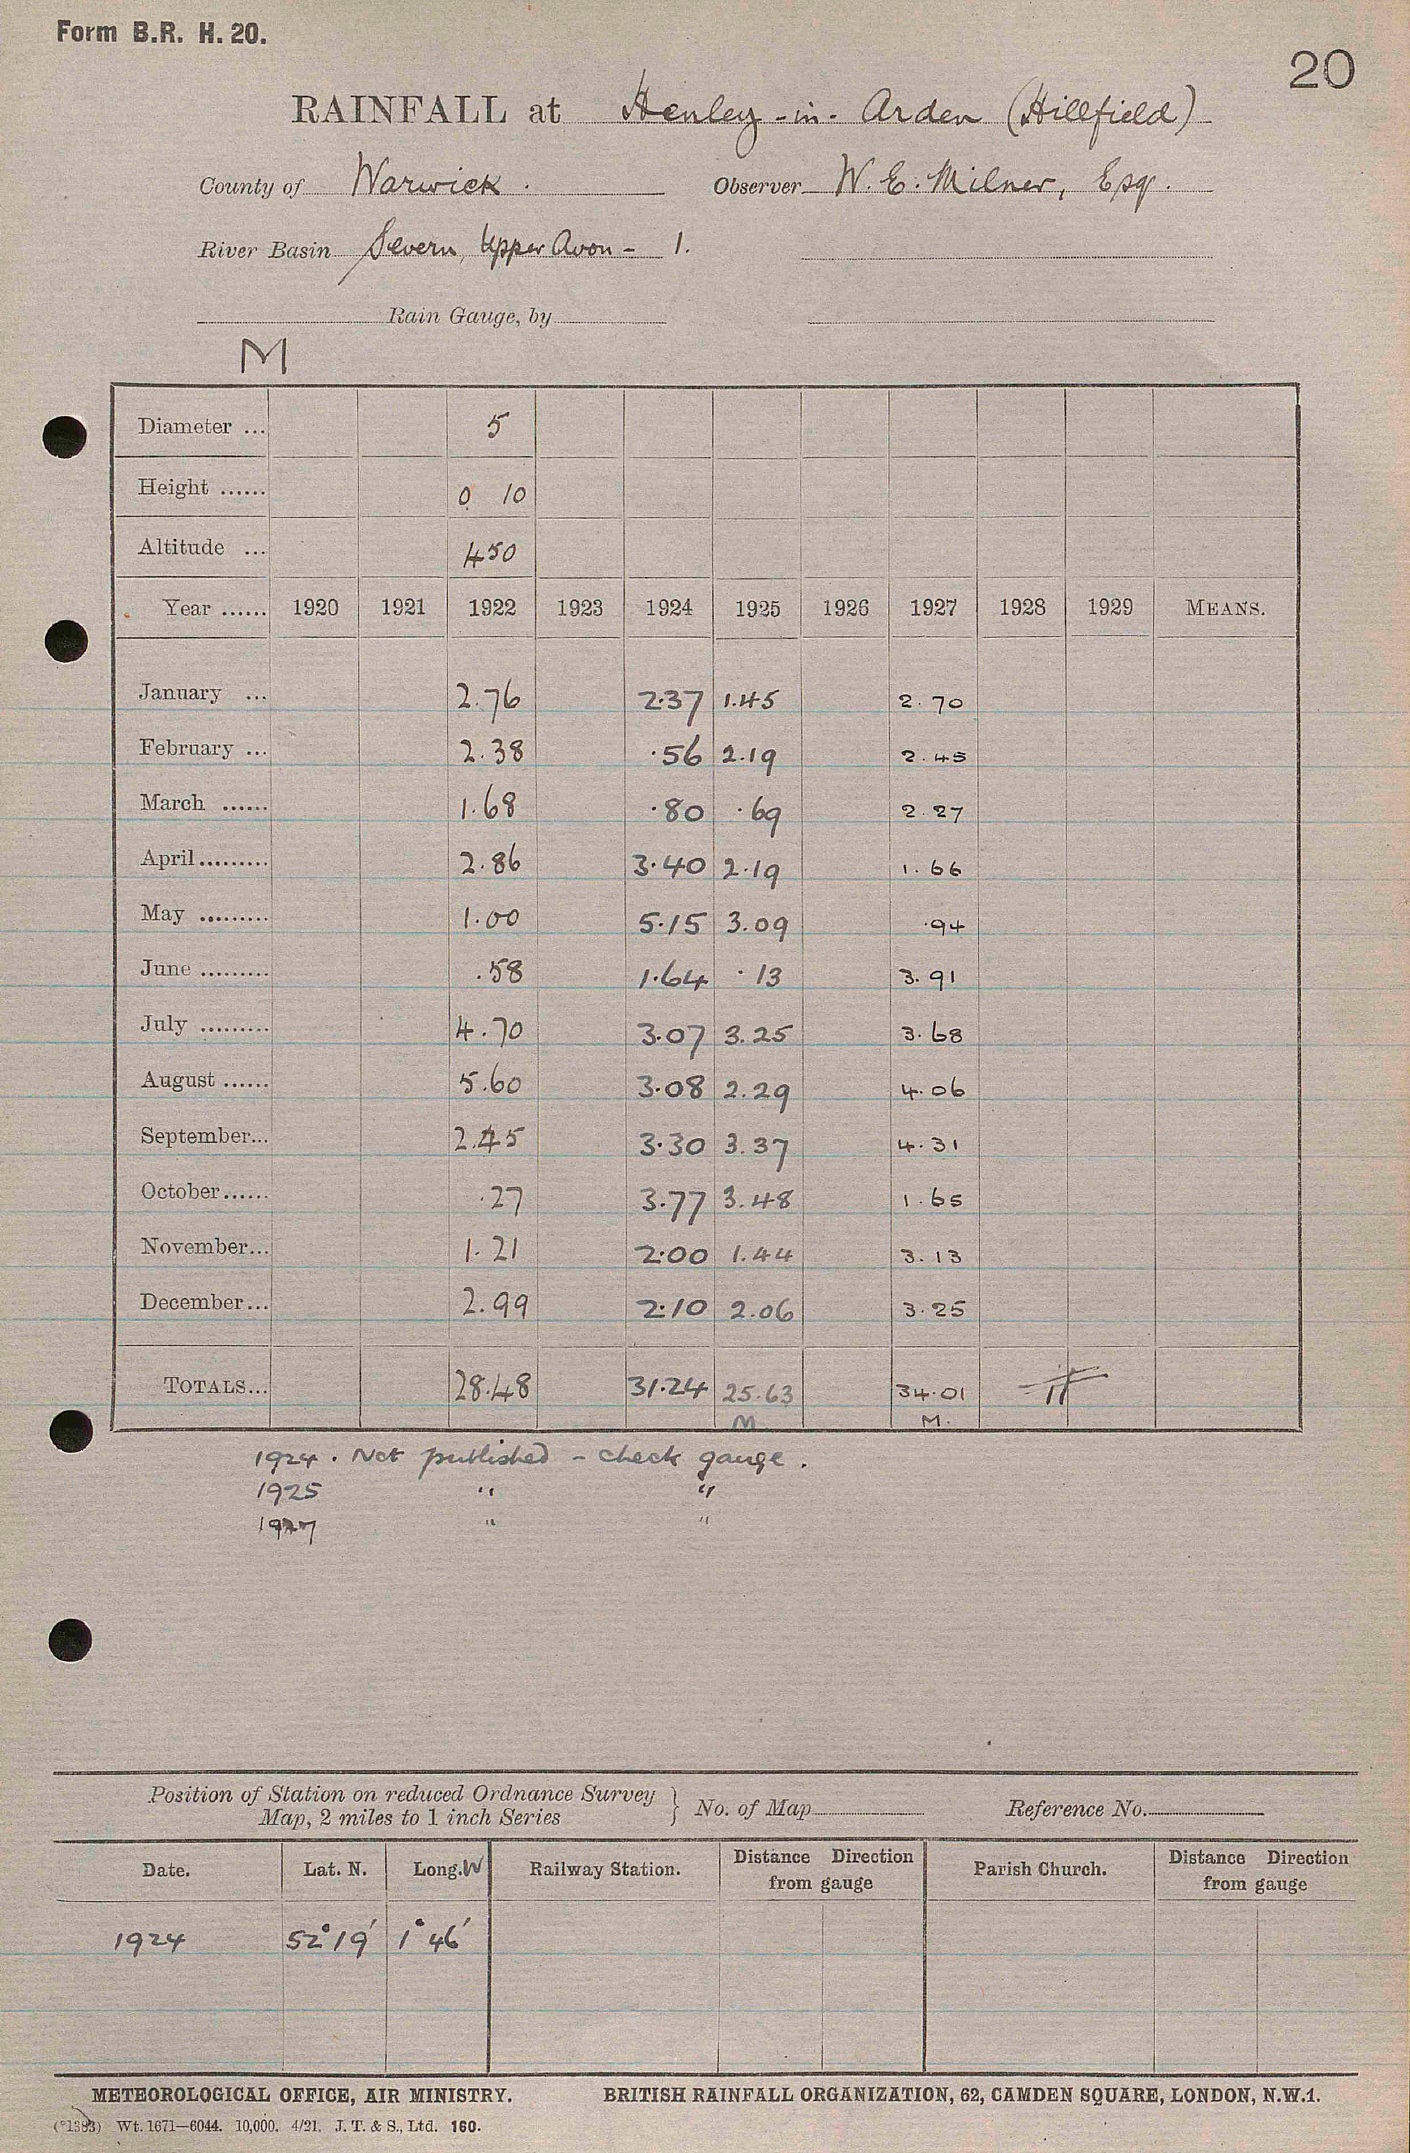 Form B.R. H. 20.
20
RAINFALL at Henley-in-Arden (Hillfield)
County of Warwick. Observer W. E. Milner, Esq.
River Basin Severn, Upper Avon - 1.
Rain Gauge, by
M
Diameter ... 5
Height ...... 0 10
Altitude ... 450
Year ...... 1920 1921 1922 1923 1924 1925 1926 1927 1928 1929 MEANS.
January ... 2.76 2.37 1.45 2.70
February ... 2.38 .56 2.19 2.45
March ...... 1.68 .80 .69 2.27
April ......... 2.86 3.40 2.19 1.66
May ......... 1.00 5.15 3.09 .94
June ......... .58 1.64 .13 3.91
July ......... 4.70 3.07 3.25 3.68
August ...... 5.60 3.08 2.29 4.06
September... 2.45 3.30 3.37 4.31
October...... .27 3.77 3.48 1.65
November... 1.21 2.00 1.44 3.13
December... 2.99 2.10 2.06 3.25
TOTALS... 28.48 31.24 25.63 34.01
M M.
1924. Not published - check gauge.
1925 " "
1927 " "
Position of Station on reduced Ordnance Survey
Map, 2 miles to 1 inch Series } No. of Map Reference No.
Date. Lat. N. Long. W Railway Station. Distance Direction from gauge Parish Church. Distance Direction from gauge
1924 52° 19' 1° 46'
METEOROLOGICAL OFFICE, AIR MINISTRY. BRITISH RAINFALL ORGANIZATION, 62, CAMDEN SQUARE, LONDON, N.W.1.
(*1383) Wt. 1671—6044. 10,000. 4/21. J. T. & S., Ltd. 160.